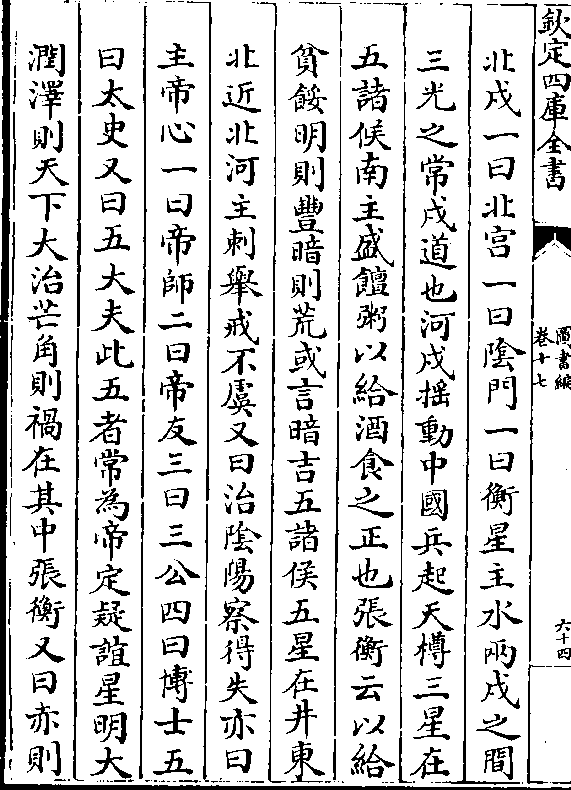 欽定四庫全書
圖書編
卷十七
六十四
北戍一曰北宫一曰陰門一曰衡星主水兩戍之間
三光之常戍道也河戍揺動中國兵起天樽三星在
五諸侯南主盛饘粥以給酒食之正也張衡云以給
貧餒明則豐暗則荒或言暗吉五諸侯五星在井東
北近北河主刺舉戒不虞又曰治陰陽察得失亦曰
主帝心一曰帝師二曰帝友三曰三公四曰博士五
曰太史又曰五大夫此五者常為帝定疑誼星明大
潤澤則天下大治芒角則禍在其中張衡又曰赤則